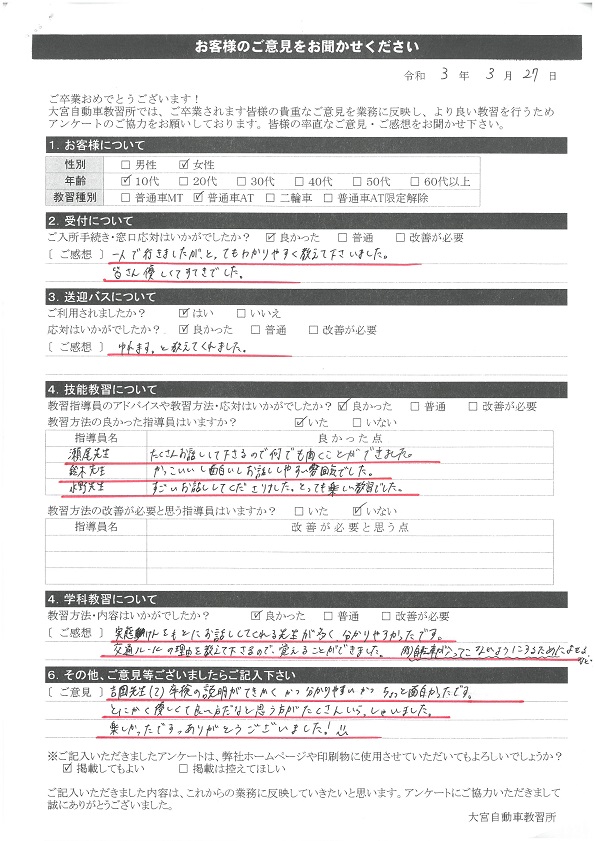 お客様のご意見をお聞かせください
令和 3 年 3 月 27 日
ご卒業おめでとうございます！
大宮自動車教習所では、ご卒業されます皆様の貴重なご意見を業務に反映し、より良い教習を行うため
アンケートのご協力をお願いしております。皆様の率直なご意見・ご感想をお聞かせ下さい。
1. お客様について
性別 □ 男性 ☑ 女性
年齢 ☑ 10代 □ 20代 □ 30代 □ 40代 □ 50代 □ 60代以上
教習種別 □ 普通車MT ☑ 普通車AT □ 二輪車 □ 普通車AT限定解除
2. 受付について
ご入所手続き・窓口応対はいかがでしたか？ ☑ 良かった □ 普通 □ 改善が必要
〔 ご感想 〕 一人で行きましたが、とてもわかりやすく教えて下さいました。
皆さん優しくてすてきでした。
3. 送迎バスについて
ご利用されましたか？ ☑ はい □ いいえ
応対はいかがでしたか？ ☑ 良かった □ 普通 □ 改善が必要
〔 ご感想 〕 ゆれます。と教えてくれました。
4. 技能教習について
教習指導員のアドバイスや教習方法・応対はいかがでしたか？ ☑ 良かった □ 普通 □ 改善が必要
教習方法の良かった指導員はいますか？ ☑ いた □ いない
指導員名 良かった点
瀬尾先生 たくさんお話しして下さるので何でも聞くことができました。
鈴木先生 かっこいいし面白いしお話ししやすい雰囲気でした。
水野先生 すごいお話ししてくださりました。とっても楽しい教習でした。
教習方法の改善が必要と思う指導員はいますか？ □ いた ☑ いない
指導員名 改善が必要と思う点
4. 学科教習について
教習方法・内容はいかがでしたか？ ☑ 良かった □ 普通 □ 改善が必要
〔 ご感想 〕 をもとにお話ししてくれる先生が多く 分かりやすかったです。
交通ルールの理由を教えて下さるので、覚えることができました。
6. その他、ご意見等ございましたらご記入下さい
〔 ご意見 〕 吉田先生(?) 午後の説明がてきかく かつ 分かりやすい かつ ちょっと面白かったです。
とにかく優しくて良い方だなと思う方がたくさんいらっしゃいました。
楽しかったですっ。ありがとうございました！
※ご記入いただきましたアンケートは、弊社ホームページや印刷物に使用させていただいてもよろしいでしょうか？
☑ 掲載してもよい □ 掲載は控えてほしい
ご記入いただきました内容は、これからの業務に反映していきたいと思います。アンケートにご協力いただきまして
誠にありがとうございました。
大宮自動車教習所